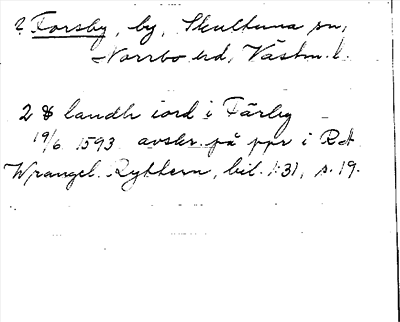 ? Forsby, by, Skultuna sn,
Norrbo hd, Västm. l.
2 landh iord i Färby
19/6 1593 avskr. på ppr i RA
Wrangel. Ryttern, bil. 1:31, s. 19.